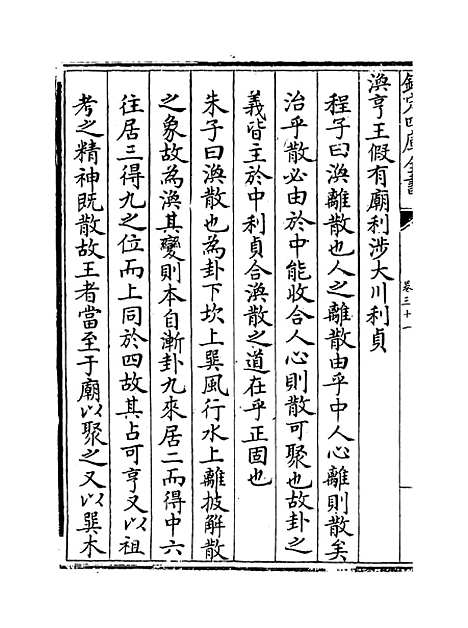 欽定四庫全書
卷三十一
渙亨王假有廟利涉大川利貞
程子曰渙離散也人之離散由乎中人心離則散矣
治乎散必由於中能收合人心則散可聚也故卦之
義皆主於中利貞合渙散之道在乎正固也
朱子曰渙散也為卦下坎上巽風行水上離披解散
之象故為渙其變則本自漸卦九來居二而得中六
往居三得九之位而上同於四故其占可亨又以祖
考之精神既散故王者當至于廟以聚之又以巽木